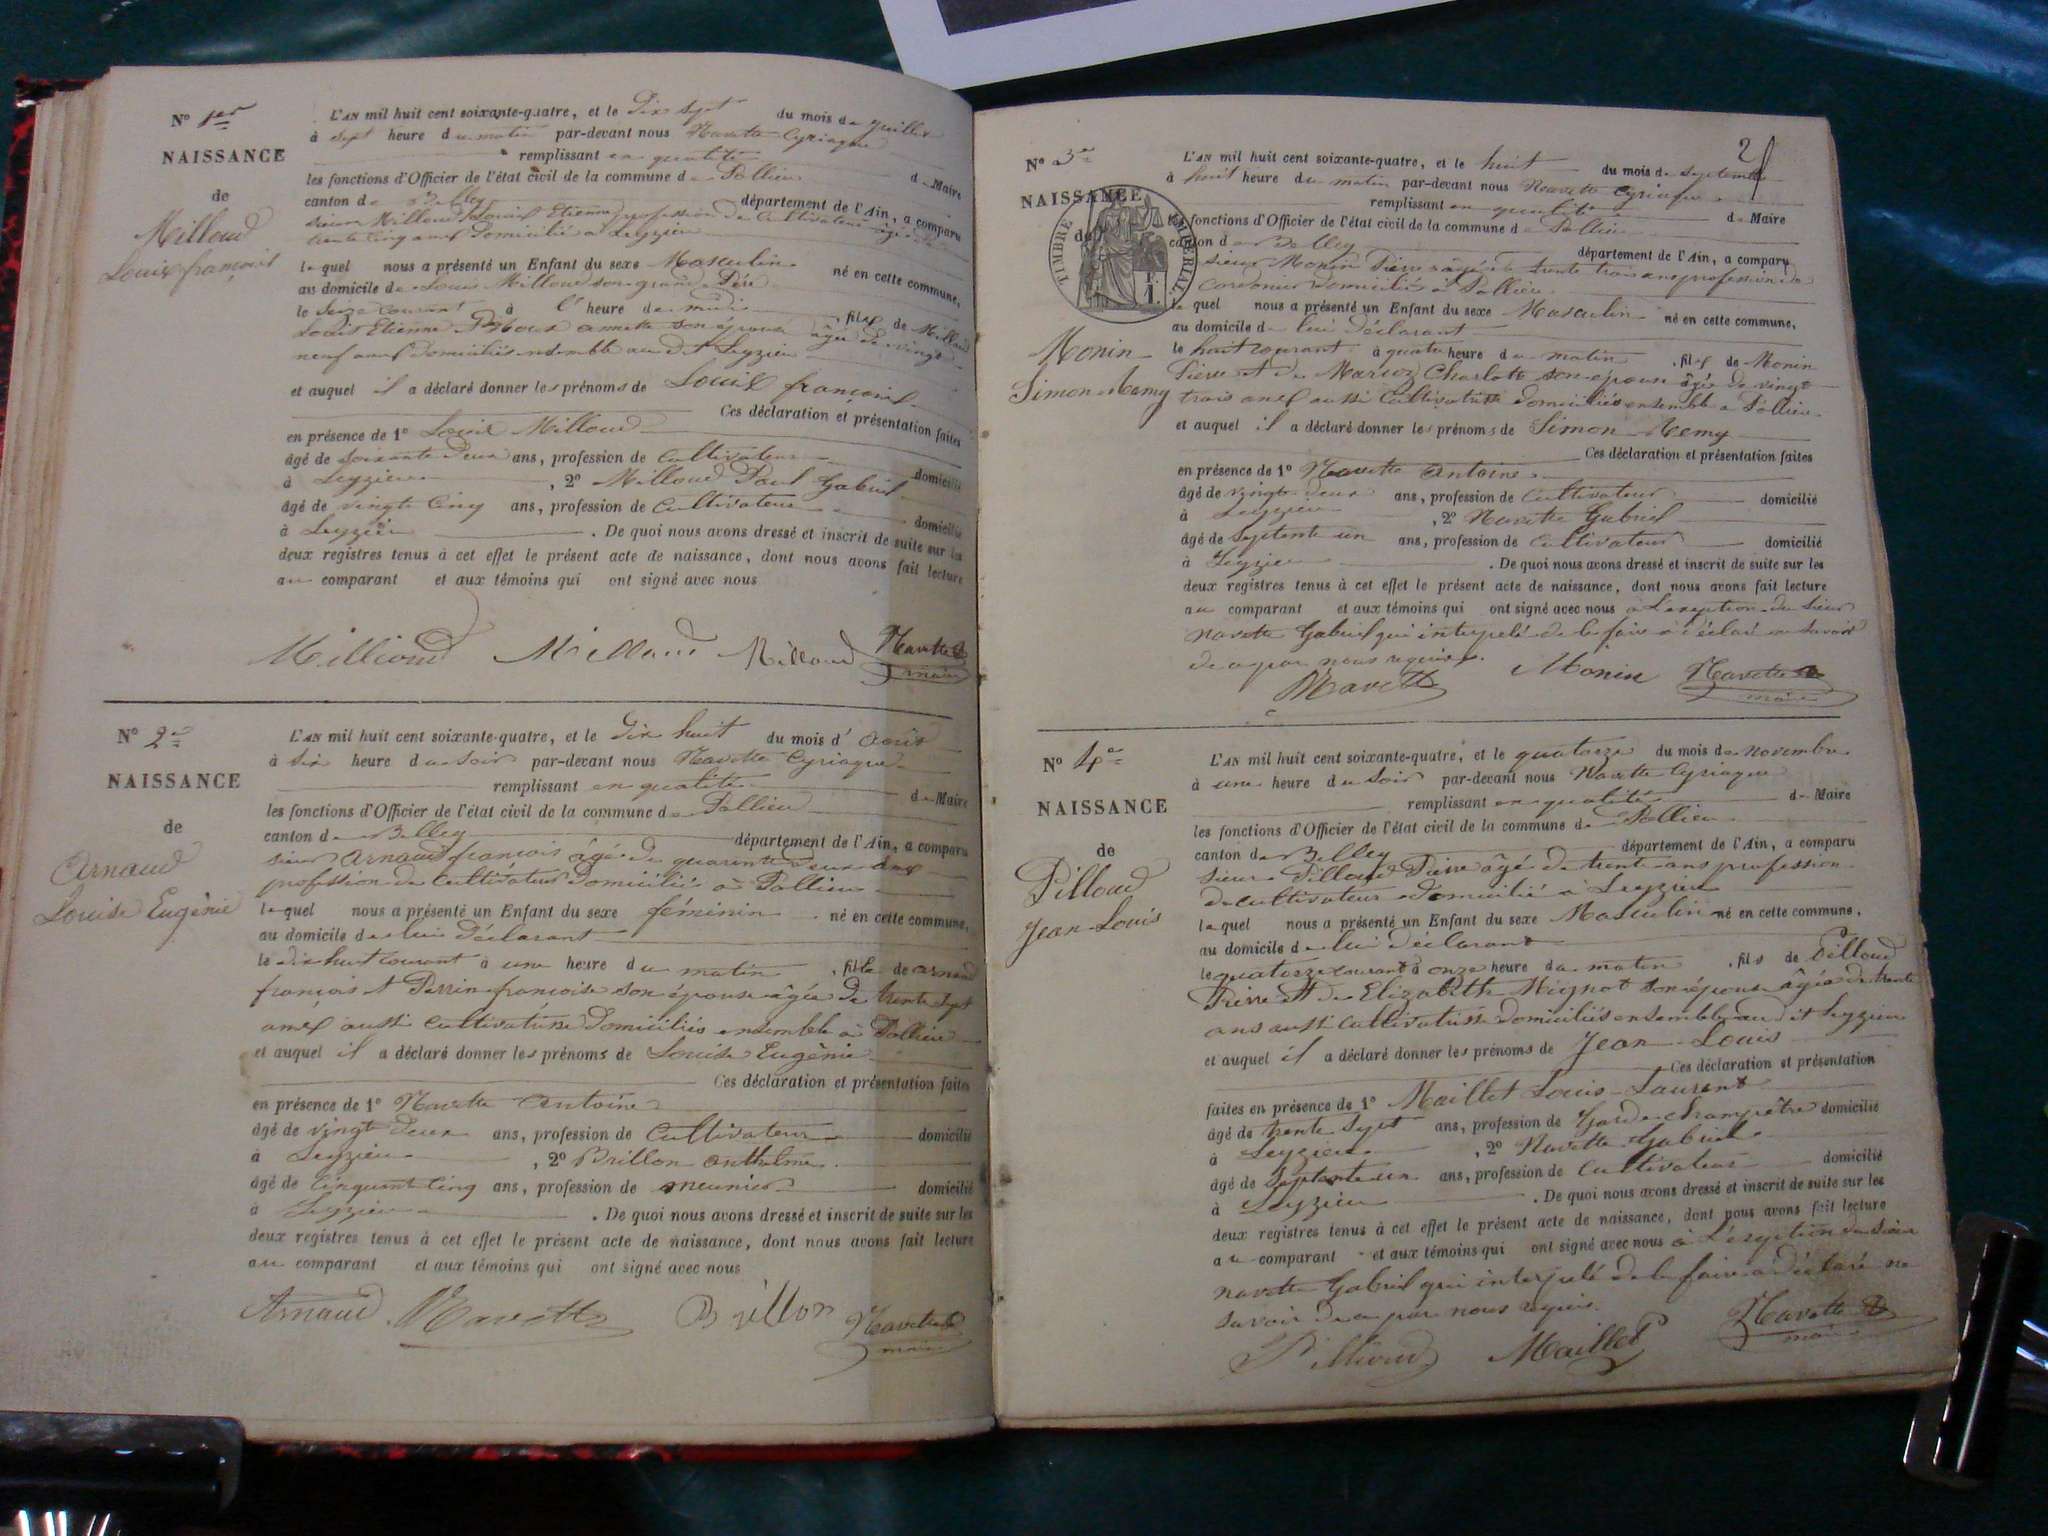 N° 1er
NAISSANCE
de
Milloud
Louis françois
L'AN mil huit cent soixante-quatre, et le Dix sept du mois de juillet
à sept heure du matin par-devant nous Navette Cyriaque
remplissant en qualité de Maire
les fonctions d'Officier de l'état civil de la commune de Pollieu
canton de Belley département de l'Ain, a comparu
sieur Milloud Louis Etienne profession de Cultivateur âgé de
trente cinq ans Domicilié à Leyzieu
lequel nous a présenté un Enfant du sexe Masculin né en cette commune,
au domicile de Louis Milloud son grand Père
le Seize courant à l'heure de midi, fils de Milloud
Louis Etienne et son épouse âgée de vingt
neuf ans domiciliés ensemble au dit Leyzieu
et auquel il a déclaré donner les prénoms de Louis françois
Ces déclaration et présentation faites
en présence de 1° Louis Milloud
âgé de soixante deux ans, profession de Cultivateur domicilié
à Leyzieu, 2° Milloud Paul Gabriel
âgé de vingt Cinq ans, profession de Cultivateur domicilié
à Leyzieu. De quoi nous avons dressé et inscrit de suite sur les
deux registres tenus à cet effet le présent acte de naissance, dont nous avons fait lecture
au comparant et aux témoins qui ont signé avec nous
Millioud Milloud Milloud Navette
maire
N° 2e
NAISSANCE
de
Arnaud
Louise Eugénie
L'AN mil huit cent soixante-quatre, et le Dix huit du mois d'août
à six heure du soir par-devant nous Navette Cyriaque
remplissant en qualité de Maire
les fonctions d'Officier de l'état civil de la commune de Pollieu
canton de Belley département de l'Ain, a comparu
sieur Arnaud françois âgé de quarante deux ans
profession de Cultivateur Domicilié à Pollieu
lequel nous a présenté un Enfant du sexe féminin né en cette commune,
au domicile de lui Déclarant
le dix huit courant à une heure du matin, fille de Arnaud
françois et Perrin françoise son épouse âgée de trente sept
ans aussi Cultivatrice Domiciliés ensemble à Pollieu
et auquel il a déclaré donner les prénoms de Louise Eugénie
Ces déclaration et présentation faites
en présence de 1° Navette Antoine
âgé de vingt deux ans, profession de Cultivateur domicilié
à Leyzieu, 2° Brillon Anthelme
âgé de Cinquante Cinq ans, profession de meunier domicilié
à Leyzieu. De quoi nous avons dressé et inscrit de suite sur les
deux registres tenus à cet effet le présent acte de naissance, dont nous avons fait lecture
au comparant et aux témoins qui ont signé avec nous
Arnaud Navette Brillon Navette
maire
2
N° 3e
NAISSANCE
de
TIMBRE IMPERIAL
1
Monin
Simon Remy
L'AN mil huit cent soixante-quatre, et le huit du mois de septembre
à huit heure du matin par-devant nous Navette Cyriaque
remplissant en qualité de Maire
les fonctions d'Officier de l'état civil de la commune de Pollieu
canton de Belley département de l'Ain, a comparu
sieur Monin Pierre âgé de trente trois ans profession de
Cordonnier domicilié à Pollieu
lequel nous a présenté un Enfant du sexe Masculin né en cette commune,
au domicile de lui déclarant
le huit courant à quatre heure du matin, fils de Monin
Pierre et de Marioz Charlotte son épouse âgée de vingt
trois ans aussi Cultivatrice domiciliés ensemble à Pollieu
et auquel il a déclaré donner les prénoms de Simon Remy
Ces déclaration et présentation faites
en présence de 1° Navette Antoine
âgé de vingt deux ans, profession de Cultivateur domicilié
à Leyzieu, 2° Navette Gabriel
âgé de Septante un ans, profession de Cultivateur domicilié
à Leyzieu. De quoi nous avons dressé et inscrit de suite sur les
deux registres tenus à cet effet le présent acte de naissance, dont nous avons fait lecture
au comparant et aux témoins qui ont signé avec nous à l'exeption du sieur
navette Gabriel qui interpelé de le faire a déclaré ne savoir
de ce par nous requis.
Navette Monin Navette
maire
N° 4e
NAISSANCE
de
Pilloud
Jean Louis
L'AN mil huit cent soixante-quatre, et le quatorze du mois de novembre
à une heure du soir par-devant nous Navette Cyriaque
remplissant en qualité de Maire
les fonctions d'Officier de l'état civil de la commune de Pollieu
canton de Belley département de l'Ain, a comparu
sieur Pilloud Pierre âgé de trente ans profession
de cultivateur domicilié à Leyzieu
lequel nous a présenté un Enfant du sexe Masculin né en cette commune,
au domicile de lui déclarant
le quatorze courant à onze heure du matin, fils de Pilloud
Pierre et de Elizabeth Mignot son épouse âgée de trente
ans aussi cultivatrice domiciliés ensemble au dit Leyzieu
et auquel il a déclaré donner les prénoms de Jean Louis
Ces déclaration et présentation
faites en présence de 1° Maillet Louis Laurent
âgé de trente sept ans, profession de Garde champêtre domicilié
à Leyzieu, 2° Navette Gabriel
âgé de Septante un ans, profession de Cultivateur domicilié
à Leyzieu. De quoi nous avons dressé et inscrit de suite sur les
deux registres tenus à cet effet le présent acte de naissance, dont nous avons fait lecture
au comparant et aux témoins qui ont signé avec nous à l'exeption du sieur
navette Gabriel qui interpelé de le faire a déclaré ne
savoir de ce par nous requis.
Pilloud Maillet Navette
maire